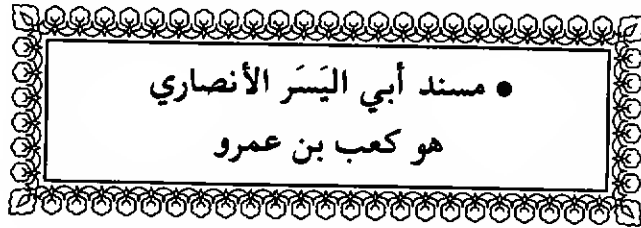 ● مسند أبي اليَسَر الأنصاري
هو كعب بن عمرو